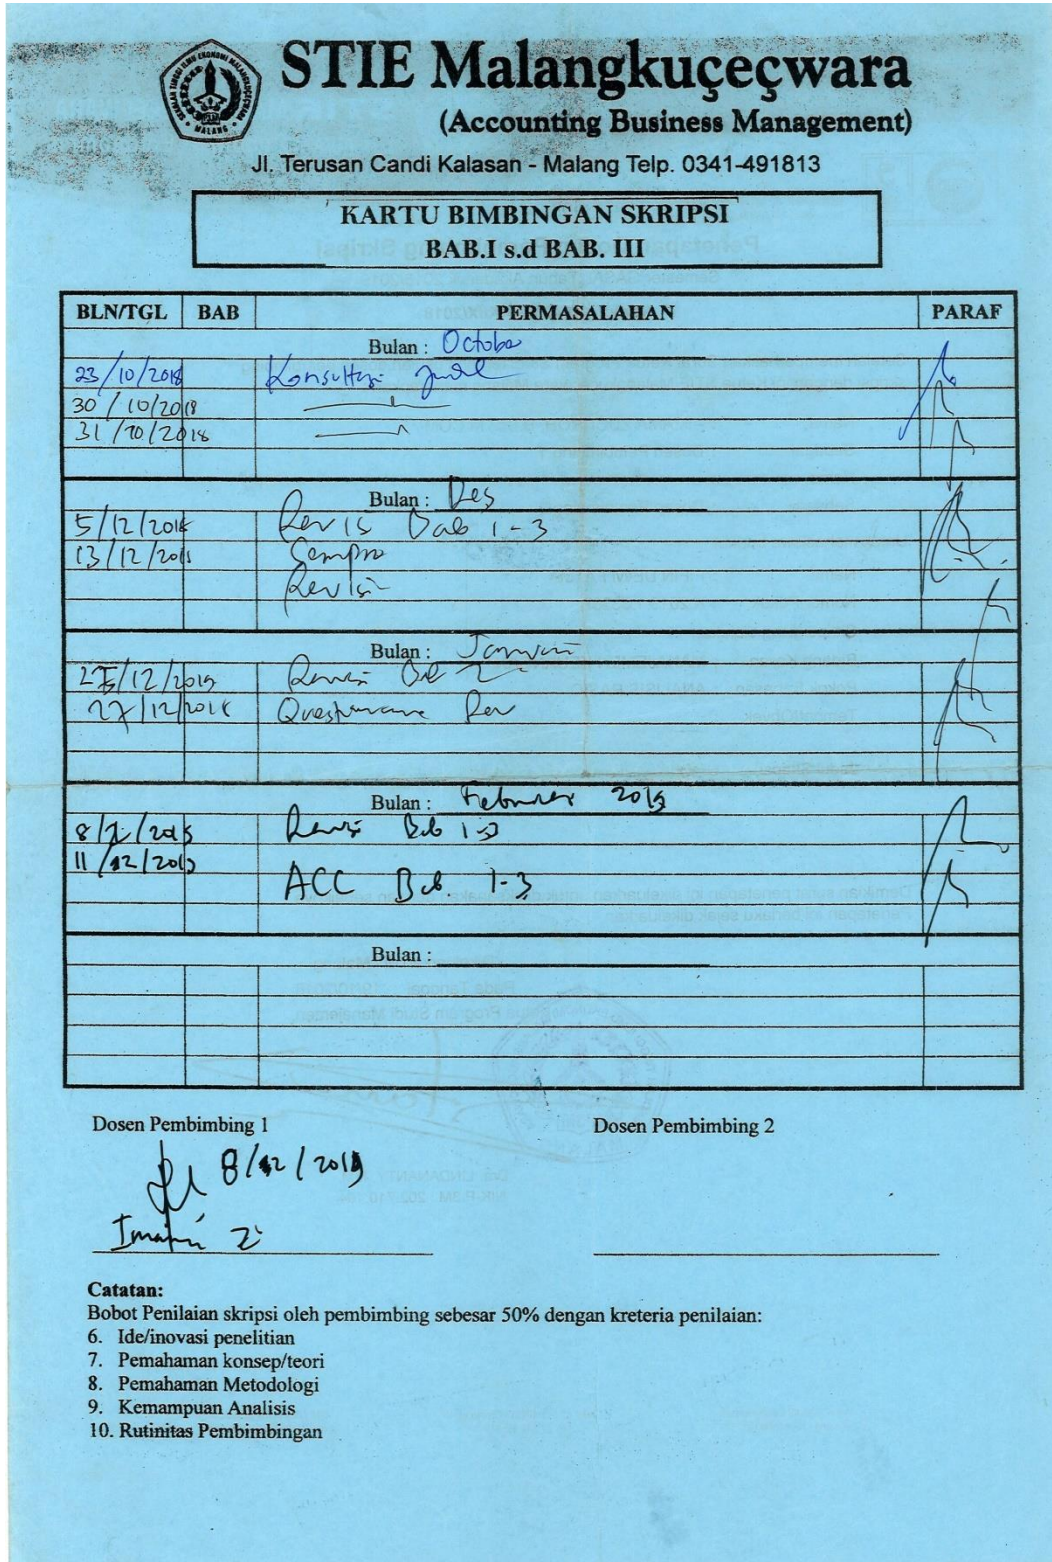 STIE Malangkuçeçwara
(Accounting Business Management)
SEKOLAH TINGGI ILMU EKONOMI MALANGKUCECWARA
MALANG
Jl. Terusan Candi Kalasan - Malang Telp. 0341-491813
KARTU BIMBINGAN SKRIPSI
BAB.I s.d BAB. III
BLN/TGL BAB PERMASALAHAN PARAF
Bulan : October
23/10/2018 Konsultasi judul
30/10/2018
31/10/2018
Bulan : Des
5/12/2018 Revisi Bab 1-3
13/12/2018 Sempro
Revisi
Bulan : Januari
/12/2019 Revisi Bab
27/12/2018 Rev
Bulan : Februari 2019
8/2/2019 Revisi Bab 1-3
11/12/2019
ACC Bab. 1-3
Bulan :
Dosen Pembimbing 1 Dosen Pembimbing 2
8/12/2019
Catatan:
Bobot Penilaian skripsi oleh pembimbing sebesar 50% dengan kreteria penilaian:
6. Ide/inovasi penelitian
7. Pemahaman konsep/teori
8. Pemahaman Metodologi
9. Kemampuan Analisis
10. Rutinitas Pembimbingan